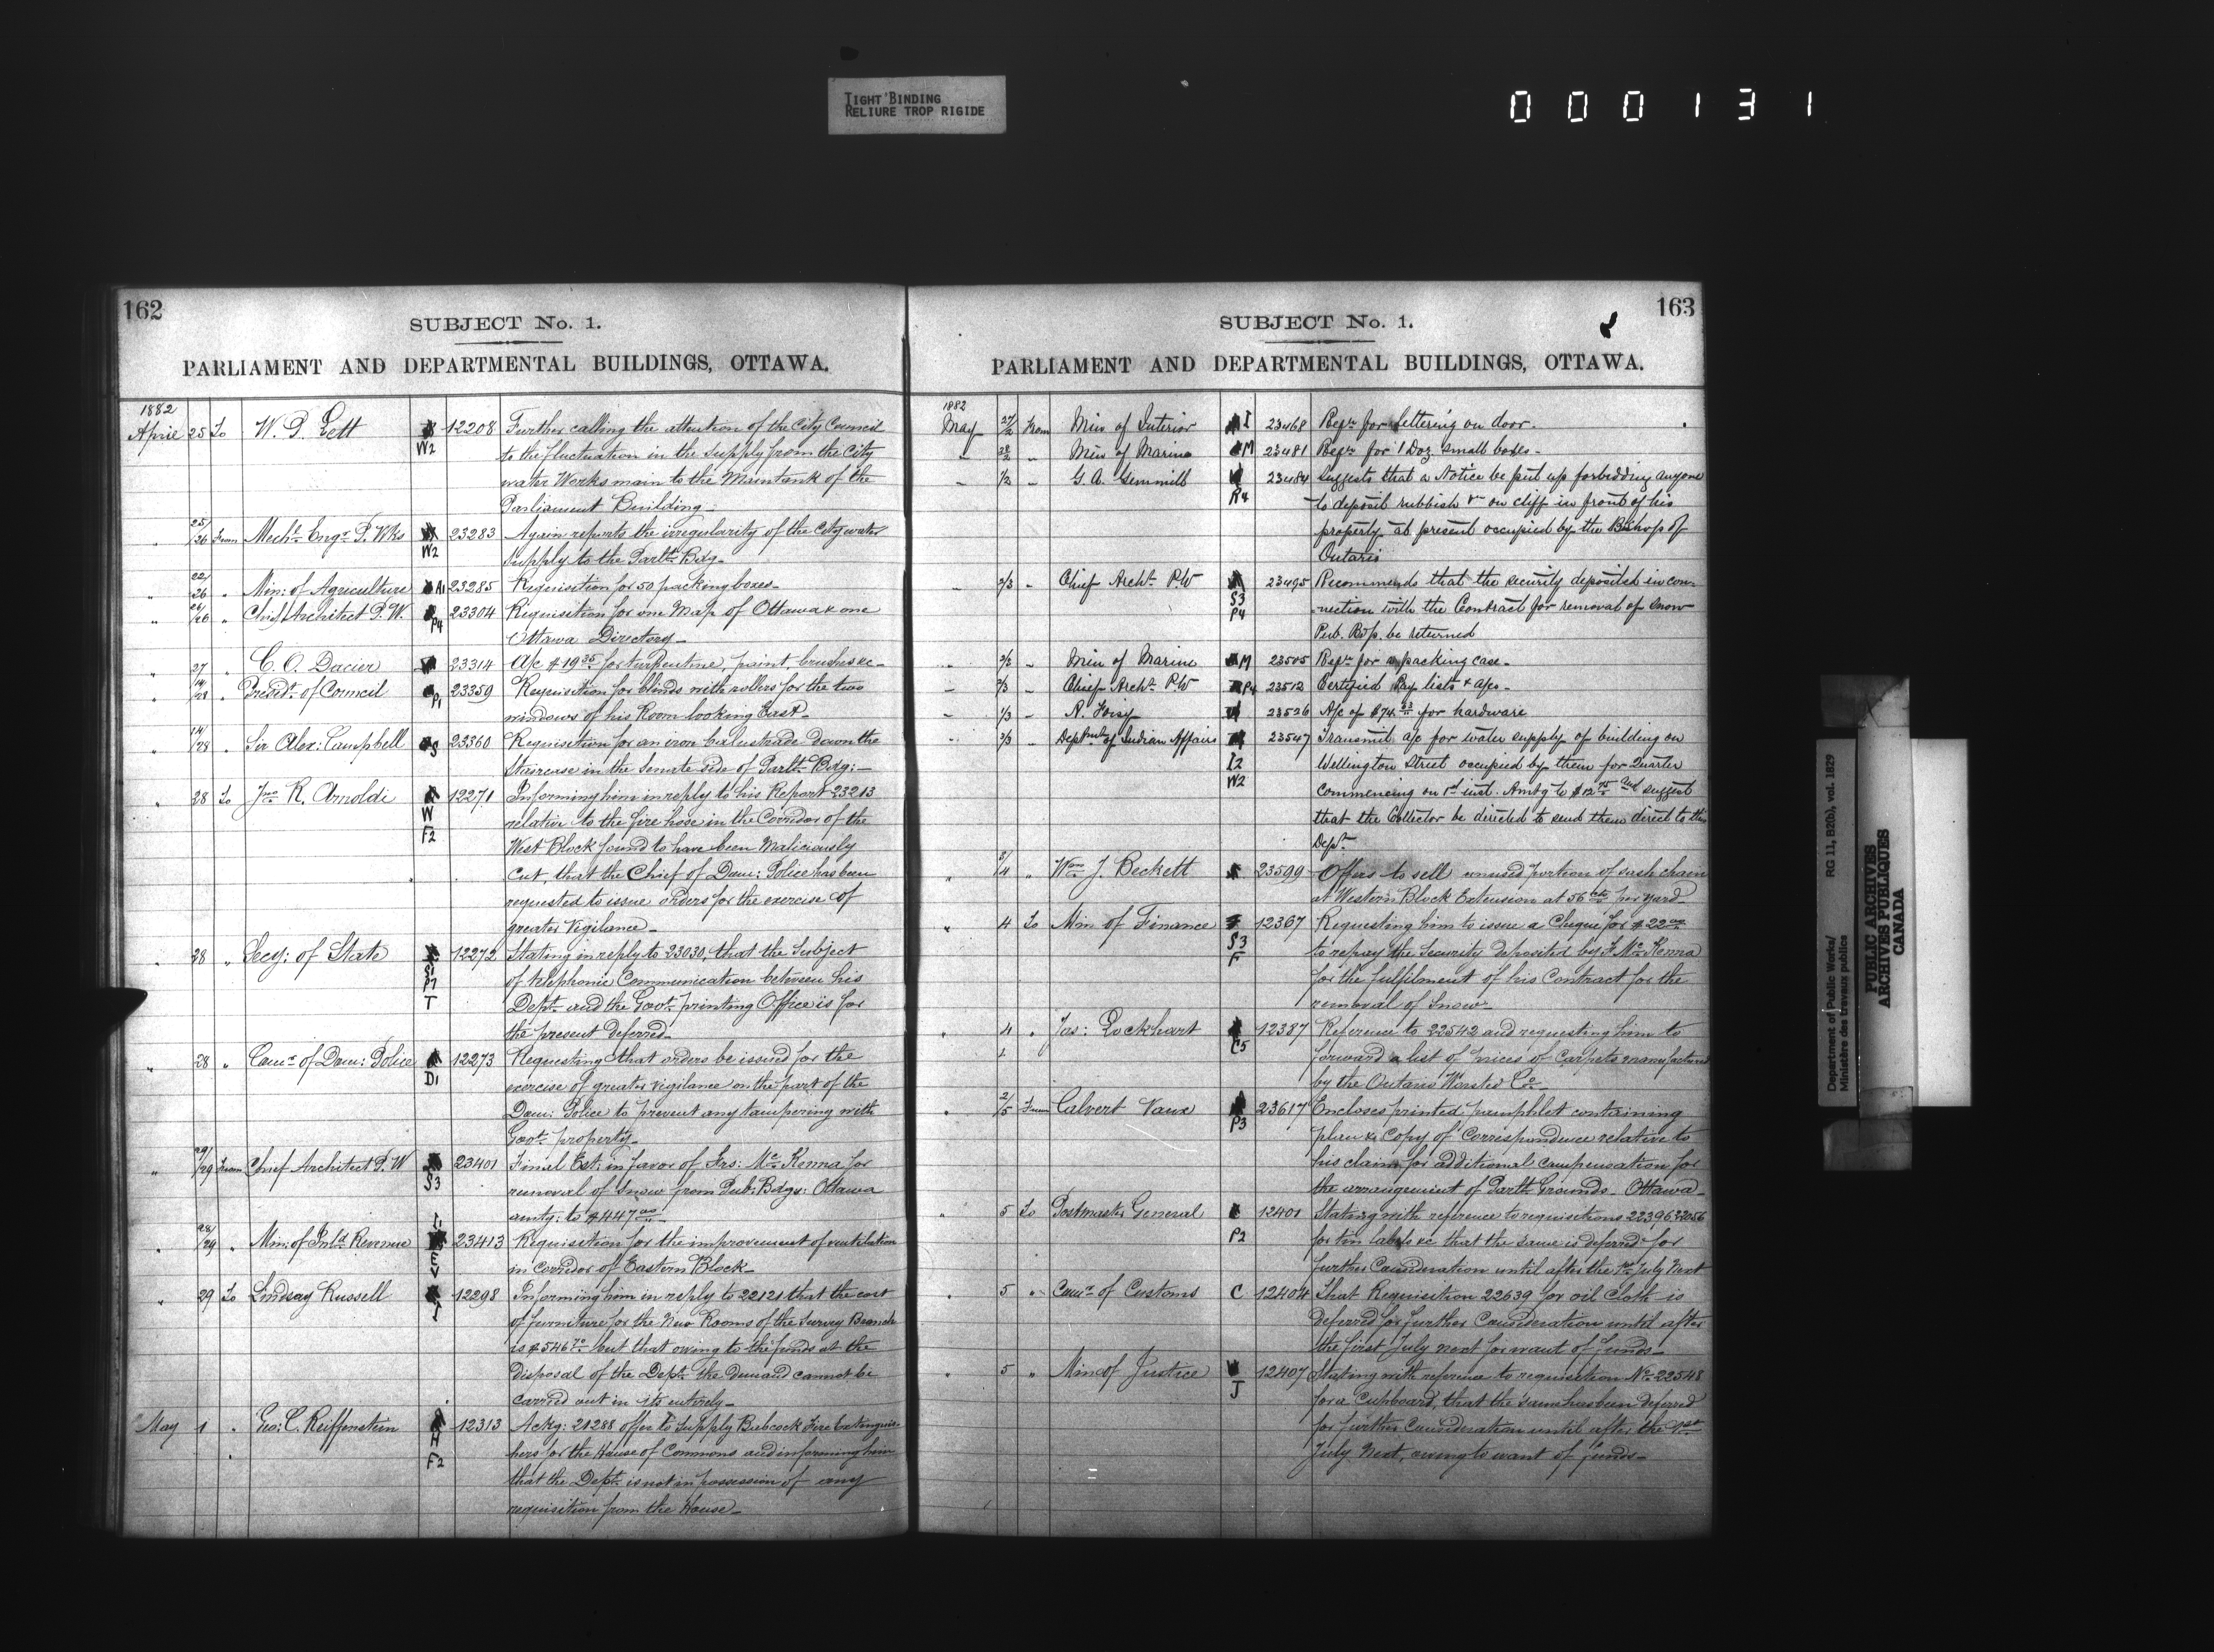 TIGHT BINDING
RELIURE TROP RIGIDE
000131
162
SUBJECT No. 1.
PARLIAMENT AND DEPARTMENTAL BUILDINGS, OTTAWA.
1882
April 25 To W. P. Lett 12208 Further calling the attention of the City Council
W2 to the fluctuation in the supply from the City
water Works main to the Maintank of the
Parliament Building_
" 25/26 From Mechl. Engr. P. Wks 23283 Again reports the irregularity of the City water
W2 supply to the Parlt. Bdg_
" 22/26 " Min: of Agriculture A1 23285 Requisition for 50 packing boxes_
" 26 " Chief Architect P. W. P4 23304 Requisition for one Map of Ottawa & one
Ottawa Directory_
" 27 " C. O. Dacier 23314 A/c $19 35 for turpentine, paint, brushes &c_
" 14/28 " Presidt. of Council P1 23359 Requisition for blinds with rollers for the two
windows of his Room looking East_
" 14/28 " Sir Alex: Campbell S 23360 Requisition for an iron balustrade down the
Staircase in the Senate side of Parlt. Bdg:_
" 28 To Jno. R. Arnoldi 12271 Informing him in reply to his Report 23213
W relative to the fire hose in the Corridor of the
F2 West Block found to have been Maliciously
cut, that the Chief of Dom: Police has been
requested to issue orders for the exercise of
greater Vigilance_
" 28 " Secy: of State 12272 Stating in reply to 23030, that the Subject
S1 of telephonic Communication between his
P7
T Dept. and the Govt. printing Office is for
the present deferred_
" 28 " Comr. of Dom: Police 12273 Requesting that orders be issued for the
D1 exercise of greater vigilance on the part of the
Dom: Police to prevent any tampering with
Govt. property_
" 29/29 From Chief Architect P. W 23401 Final Est: in favor of Frs: McKenna for
S3 removal of Snow from Pub: Bdgs: Ottawa
amtg: to $447 00_
" 28/29 " Min: of Inld. Revenue 23413 Requisition for the improvement of ventilation
E
V in Corridor of Eastern Block_
" 29 To Lindsay Russell 12298 Informing him in reply to 22121 that the cost
I of furniture for the New Rooms of the Survey Branch
is $546 70 but that owing to the funds at the
Disposal of the Dept. the demand cannot be
carried out in its entirely_
May 1 " Geo: C. Reiffenstein 12313 Ackg: 21288 offer to supply Babcock Fire Extinguis-
H hers for the House of Commons and informing him
F2
that the Dept. is not in possession of any
requisition from the House_
163
SUBJECT No. 1.
PARLIAMENT AND DEPARTMENTAL BUILDINGS, OTTAWA.
1882
May 27/2 From Min of Interior I 23468 Reqn. for lettering on door.
" 28/2 " Min of Marine M 23481 Reqn. for 1 Doz small boxes_
" 1/2 " G. A. Gemmill 23484 Suggests that a Notice be put up forbidding anyone
R4 to deposit rubbish &c on cliff in front of his
property at present occupied by the Bishop of
Ontario
" 2/3 " Chief Archt. PW 23495 Recommends that the security deposited in con-
S3 nection with the Contract for removal of snow
P4 Pub. Bdg. be returned
" 2/3 " Min of Marine M 23505 Reqn. for a packing case_
" 2/3 " Chief Archt. PW P4 23512 Certified Pay lists & a/cs_
" 1/3 " 23526 A/c of $74 23 for hardware
" 2/3 " Deptmt. of Indian Affairs 23547 Transmit a/c for water supply of building on
I2 Wellington Street occupied by them for Quarter
W2 commencing on 1st inst. Amtg to $12 75 and suggest
that the Collector be directed to send them direct to this
Dept.
" 3/4 " Wm. J. Beckett 23599 Offers to sell unused portion of sash chain
at Western Block Extension at 56 cts per yard_
" 4 To Min of Finance 12367 Requesting him to issue a Cheque for $22 00
S3 to repay the Security deposited by F. McKenna
F for the fulfilment of his Contract for the
removal of Snow_
" 4 " Jas: Lockhart 12387 Reference to 22542 and requesting him to
C5 forward a list of prices of Carpets manufactured
by the Ontario Worsted Co_
" 2/5 From Calvert Vaux 23617 Encloses printed pamphlet containing
P3 plan & Copy of Correspondence relative to
his claim for additional compensation for
the arrangement of Parlt. Grounds_ Ottawa_
" 5 To Postmaster General 12401 Stating with reference to requisitions 22396 & 22056
P2 for tin labels &c that the same is deferred for
further Consideration until after the 1st July Next
" 5 " Comr. of Customs C 12404 That Requisition 22639 for oil Cloth is
deferred for further Consideration until after
the first July next for want of funds_
" 5 " Min of Justice 12407 Stating with reference to requisition No. 22548
J for a Cupboard, that the same has been deferred
for further Consideration until after the 1st
July Next, owing to want of funds_
Department of Public Works/
Ministère des travaux publics
RG 11, B2(b), vol. 1829
PUBLIC ARCHIVES
ARCHIVES PUBLIQUES
CANADA